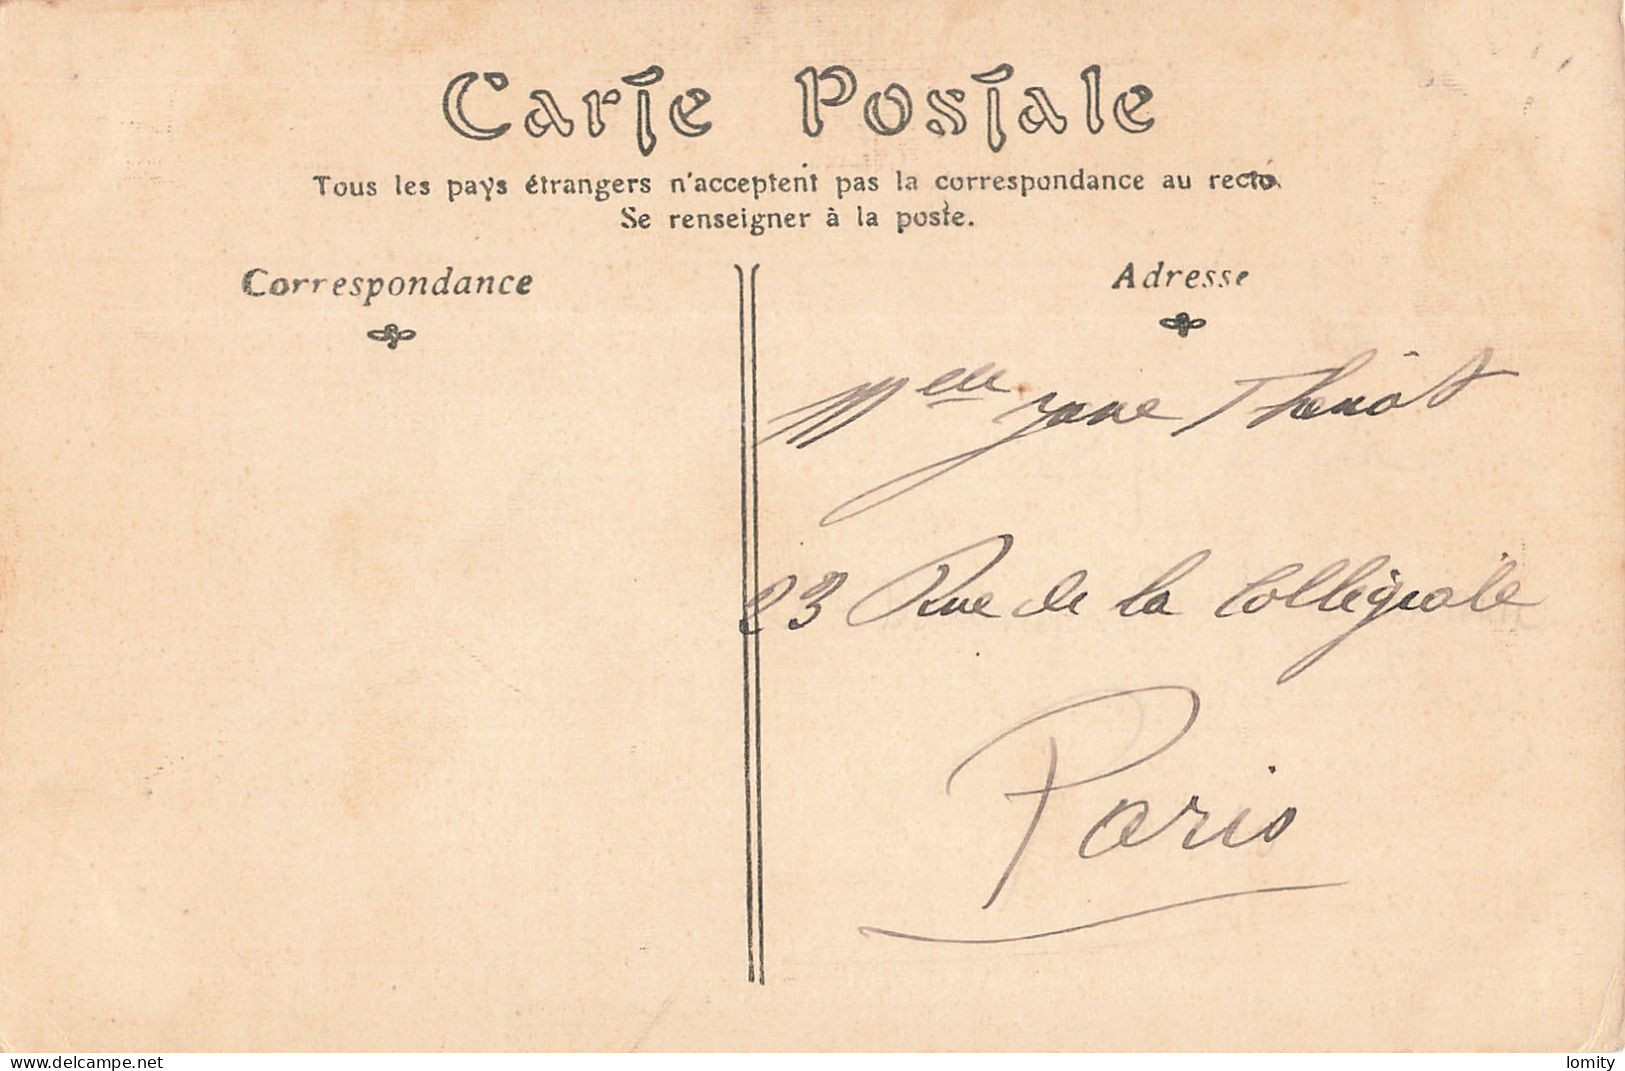 Carte Postale
Tous les pays étrangers n'acceptent pas la correspondance au recto.
Se renseigner à la poste.
Correspondance
Adresse
Melle Thenôt
23 Rue de la Collégiale
Paris
www.delcampe.net
lomity